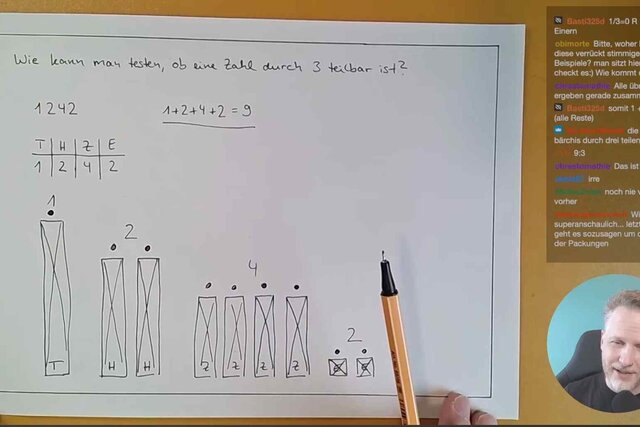 Wie kann man testen, ob eine Zahl durch 3 teilbar ist?
1242
1+2+4+2=9
T H Z E
1 2 4 2
1
2
4
2
T H H Z Z Z Z E E
Basti328d 1/3=0 R
Einern
obimorte Bitte, woher
diese verrückt stimmige
Beispiele? man sitzt hier
checkt es:) Wie kommt
chrestomathie Alle
ergeben gerade zusamm
Basti328d somit 1
(alle Reste)
die
bärchis durch drei teilen
9:3
chrestomathie Das ist
irre
noch nie
vorher
superanschaulich... letzt
geht es sozusagen um
der Packungen